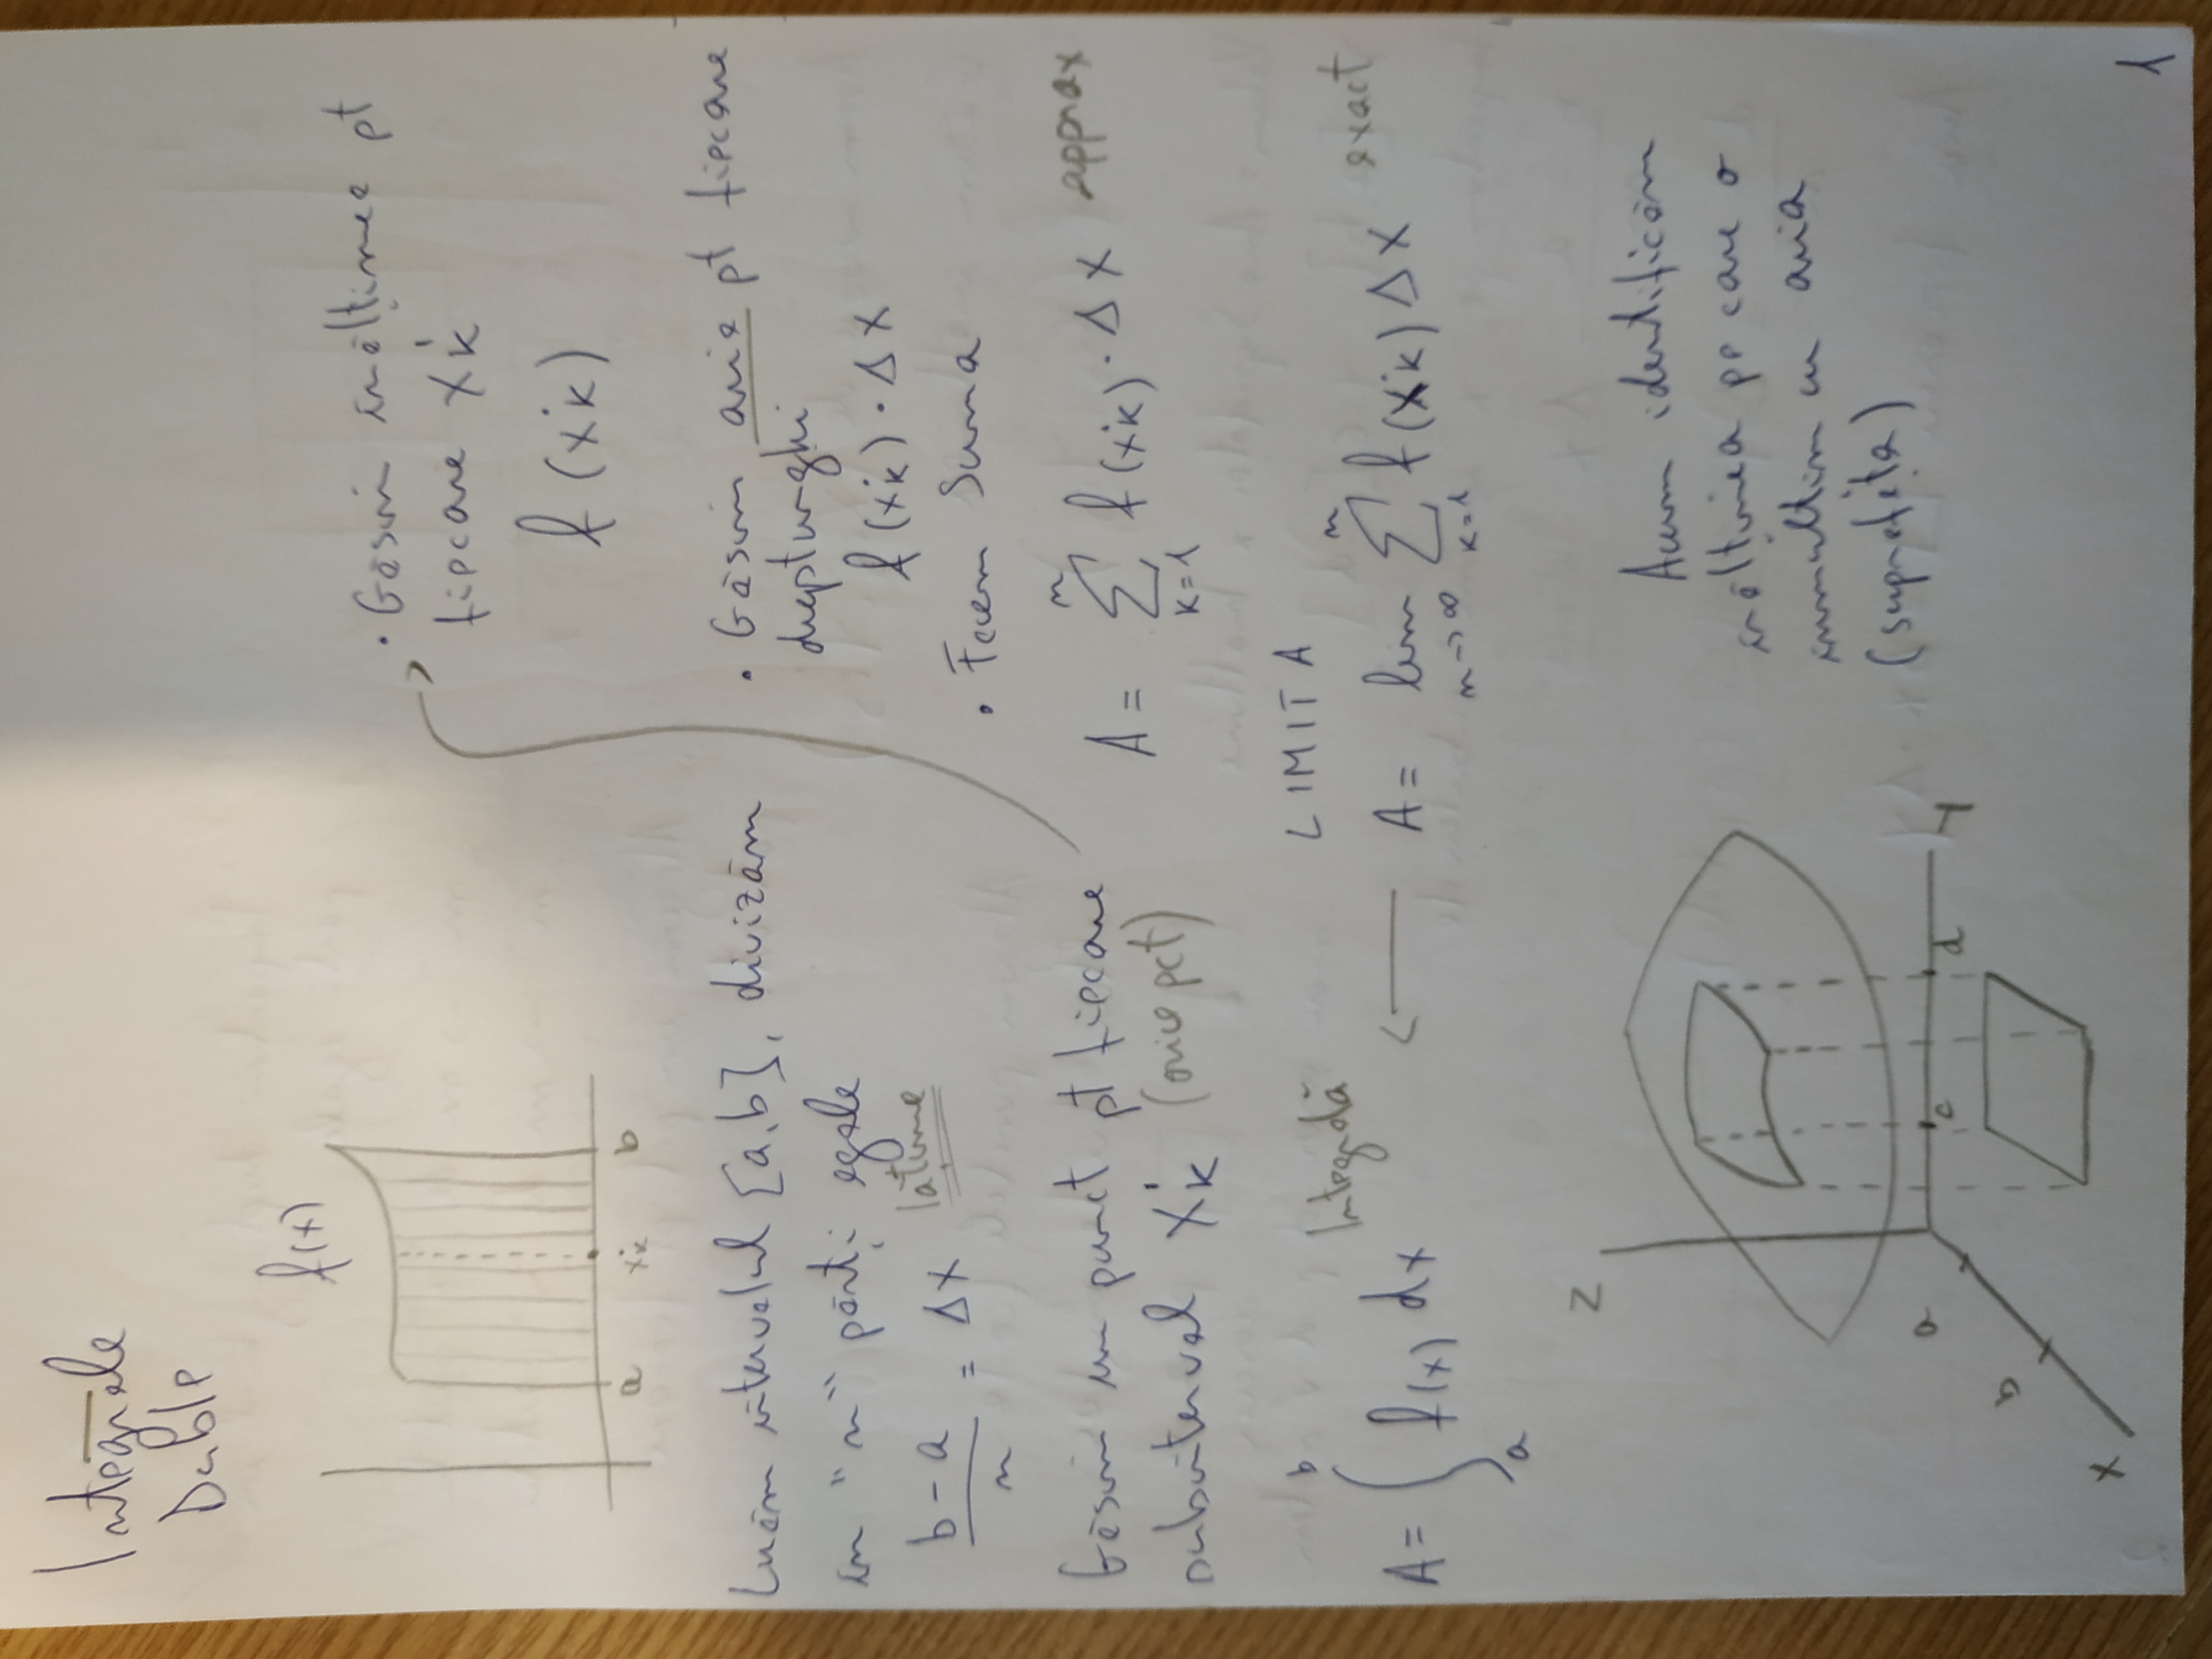 Integrale
Duble
f(x)
a
x·k
b
Luăm intervalul [a,b], divizăm
în "n" părți egale
b - a / n = Δx lățime
Găsim un punct pt fiecare
subinterval x·k (orice pct)
· Găsim înălțimea pt
fiecare x·k
f (x·k)
· Găsim aria pt fiecare
dreptunghi
f (x·k) · Δx
· Facem Suma
A = n Σ k=1 f(x·k) · Δx approx
LIMITA
A = lim n→∞ n Σ k=1 f(x·k) Δx exact
A = b ∫ a f(x) dx Integrală
z
a
b
x
c
d
y
Acum identificăm
înălțimea pe care o
inmulțim cu aria
(suprafața)
1